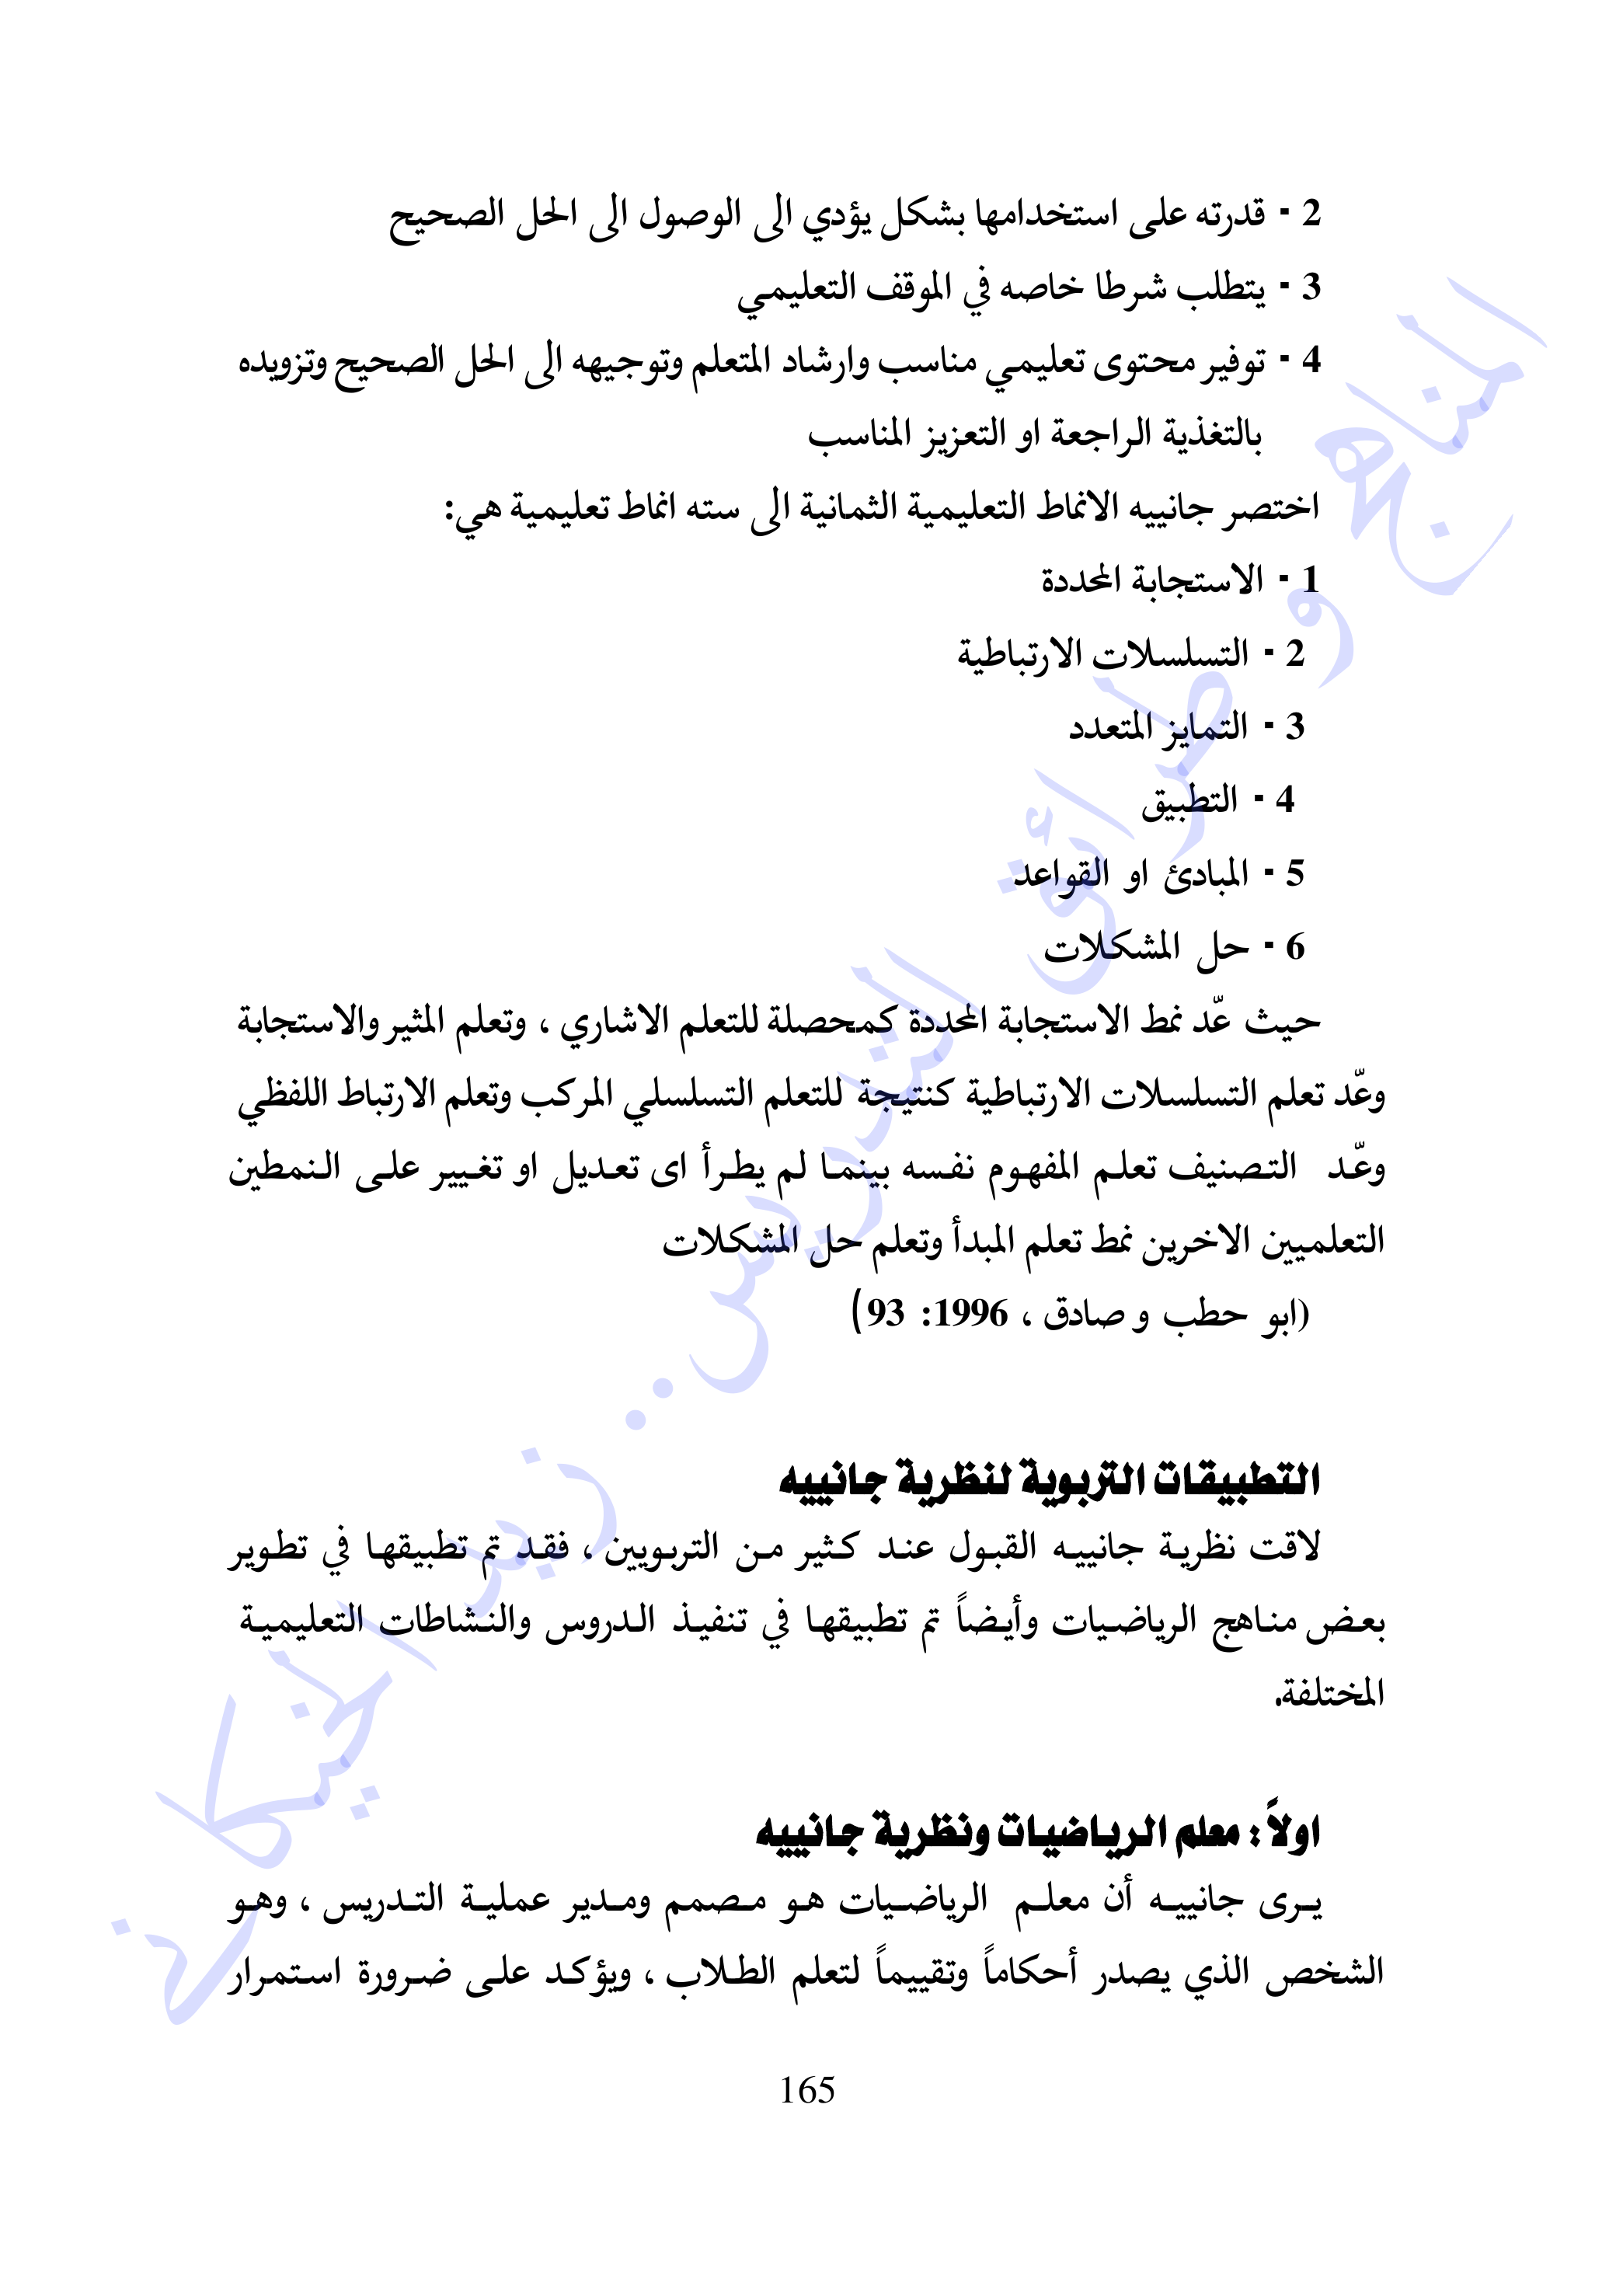 2 - قدرته على استخدامها بشكل يؤدي الى الوصول الى الحل الصحيح
3 - يتطلب شرطا خاصه في الموقف التعليمي
4 - توفير محتوى تعليمي مناسب وارشاد المتعلم وتوجيهه الى الحل الصحيح وتزويده
بالتغذية الراجعة او التعزيز المناسب
اختصر جانييه الانماط التعليمية الثمانية الى سته انماط تعليمية هي:
1 - الاستجابة المحددة
2 - التسلسلات الارتباطية
3 - التمايز المتعدد
4 - التطبيق
5 - المبادئ او القواعد
6 - حل المشكلات
حيث عّد نمط الاستجابة المحددة كمحصلة للتعلم الاشاري ، وتعلم المثير والاستجابة
وعّد تعلم التسلسلات الارتباطية كنتيجة للتعلم التسلسلي المركب وتعلم الارتباط اللفظي
وعّد التصنيف تعلم المفهوم نفسه بينما لم يطرأ اى تعديل او تغيير على النمطين
التعلميين الاخرين نمط تعلم المبدأ وتعلم حل المشكلات
(ابو حطب و صادق ، 1996: 93)
التطبيقات التربوية لنظرية جانييه
لاقت نظرية جانييه القبول عند كثير من التربويين ، فقد تم تطبيقها في تطوير
بعض مناهج الرياضيات وأيضاً تم تطبيقها في تنفيذ الدروس والنشاطات التعليمية
المختلفة.
اولاً : معلم الرياضيات ونظرية جانييه
يرى جانييه أن معلم الرياضيات هو مصمم ومدير عملية التدريس ، وهو
الشخص الذي يصدر أحكاماً وتقييماً لتعلم الطلاب ، ويؤكد على ضرورة استمرار
165
المناهج و طرائق التدريس.. زيد الخيكاني